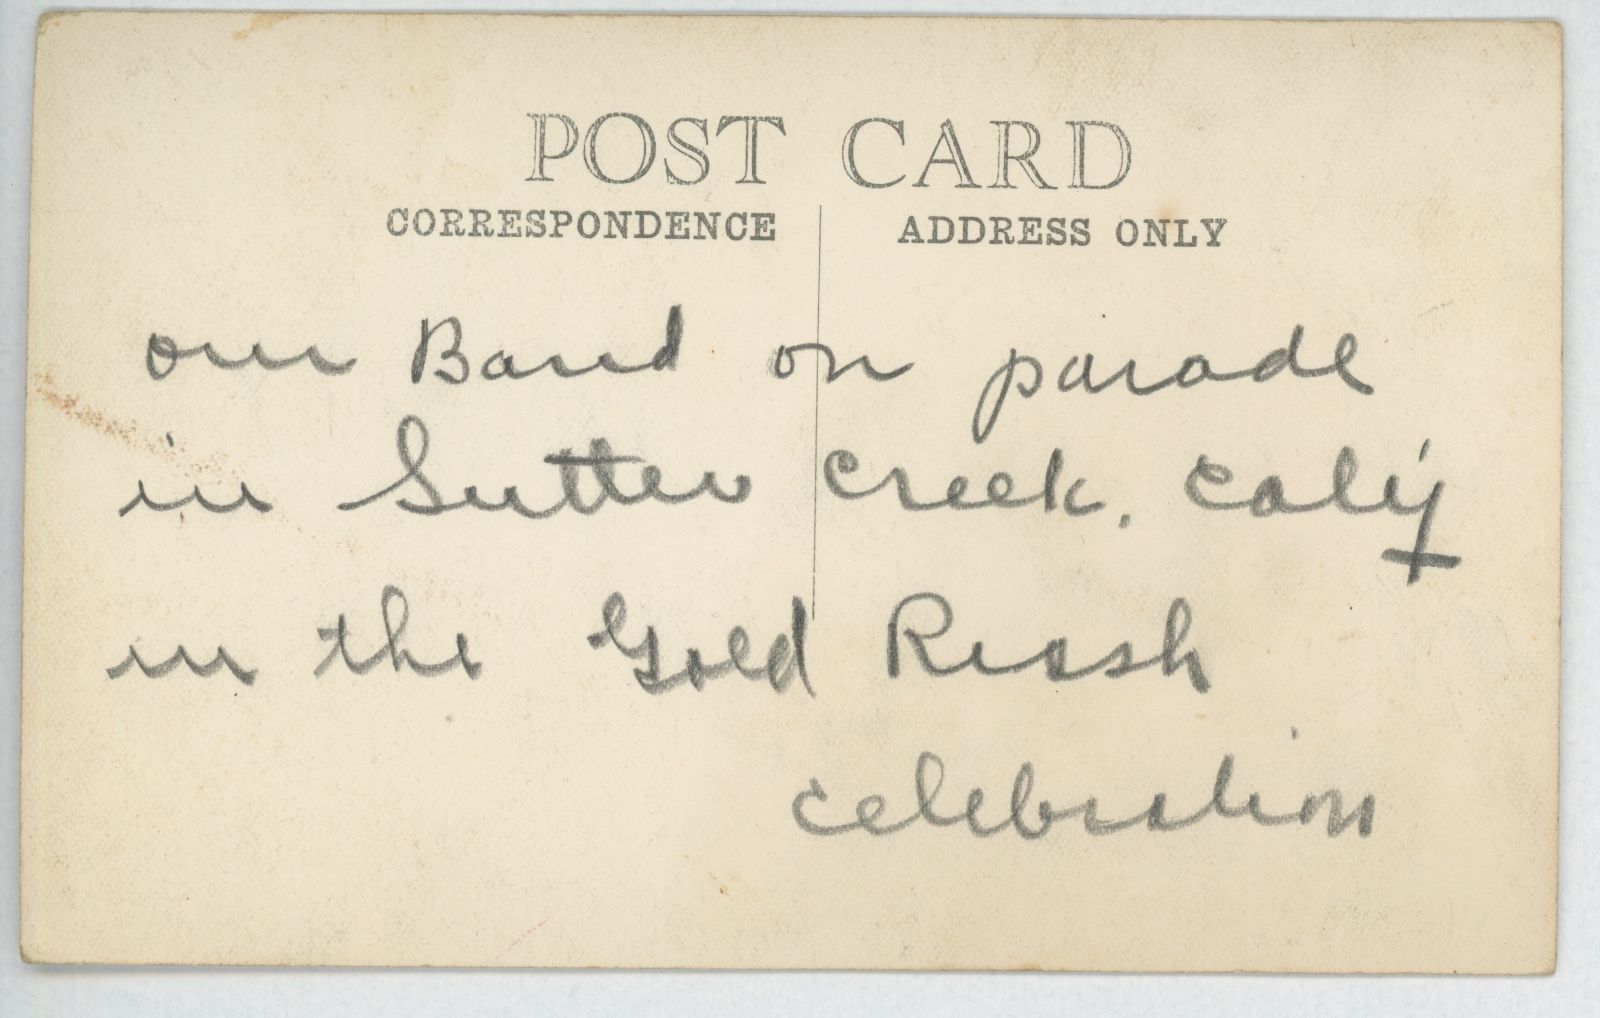 POST CARD
CORRESPONDENCE ADDRESS ONLY
our Band on parade
in Sutter Creek. Calif
in the Gold Rush
celebration